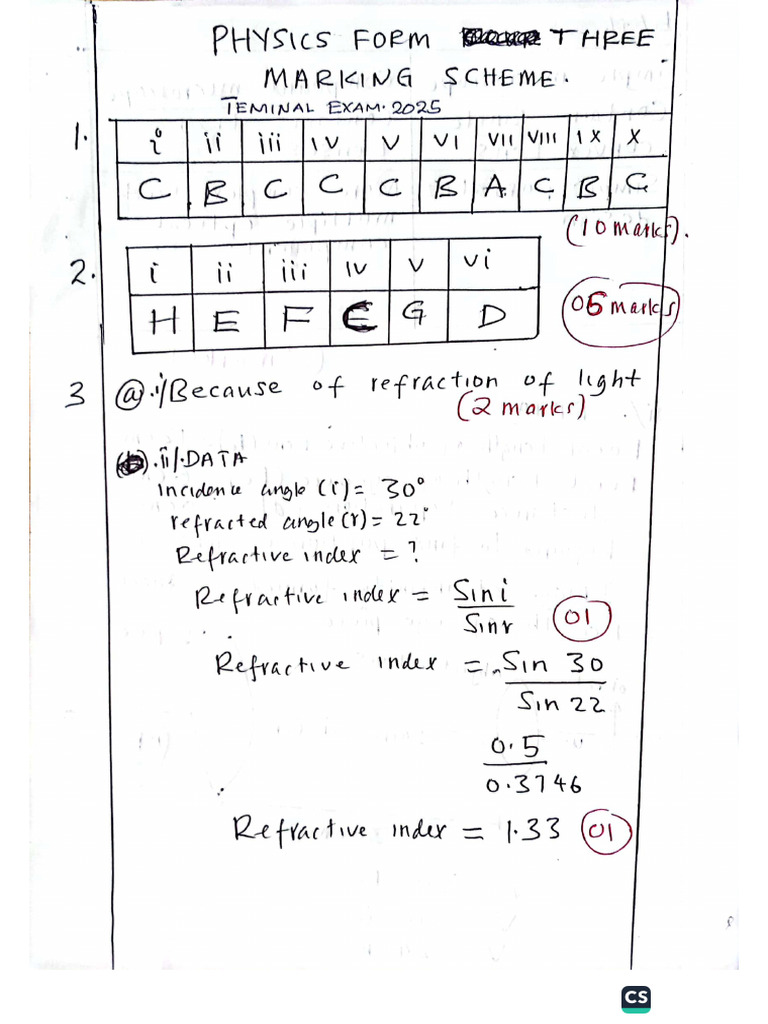 PHYSICS FORM THREE
MARKING SCHEME.
TEMINAL EXAM. 2025
1. i ii iii iv v vi vii viii ix x
C B C C C B A C B C
(10 marks).
2. i ii iii iv v vi
H E F C G D
06 marks
3 (a).i/Because of refraction of light
(2 marks)
(b).ii/.DATA
incidence angle (i) = 30°
refracted angle (r) = 22°
Refractive index = ?
Refractive index = Sin i / Sin r 01
Refractive index = Sin 30 / Sin 22
0.5 / 0.3746
Refractive index = 1.33 01
CS